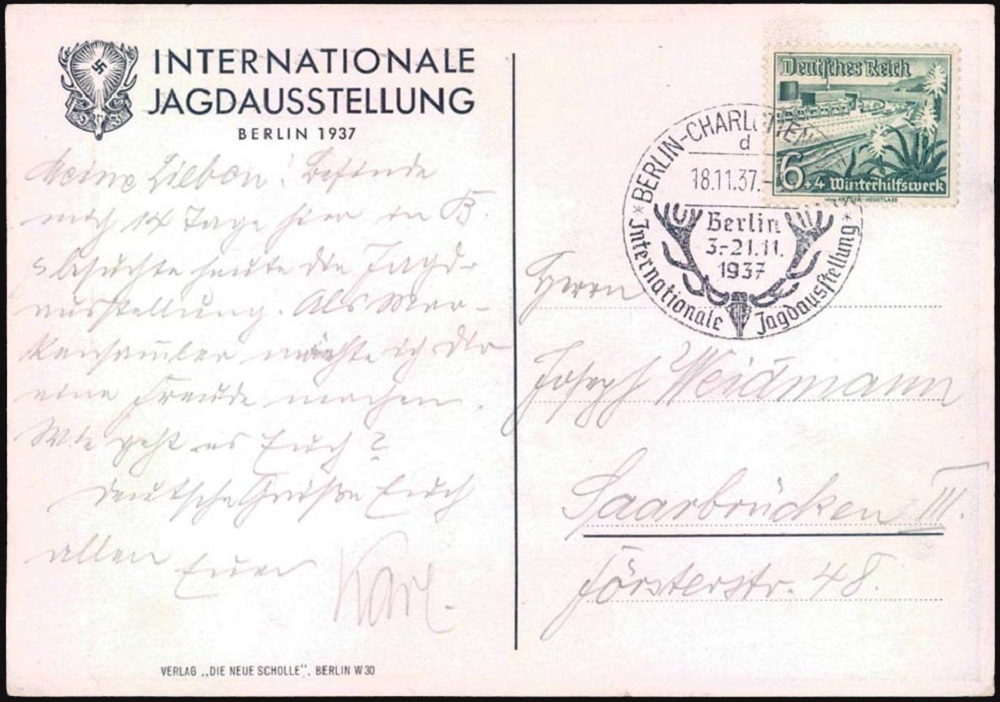 INTERNATIONALE
JAGDAUSSTELLUNG
BERLIN 1937
Meine Lieben! Befinde
mich 14 Tage hier in B.
besuchte heute die Jagd-
ausstellung. Als Mar-
kensammler möchte ich Dir
eine Freude machen.
Wie geht es Euch?
Deutsche Grüße Euch
allen Euer Karl.
VERLAG „DIE NEUE SCHOLLE", BERLIN W 30
Deutsches Reich
6+4 Winterhilfswerk
BERLIN-CHARLOTTEN
d
18.11.37.
Berlin
3.-21.11.
1937
Internationale Jagdausstellung
Herrn
Joseph Weidmann
Saarbrücken III.
Försterstr. 48.